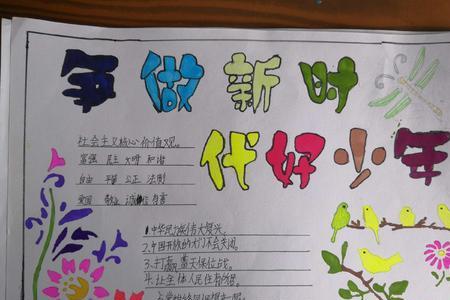 争做新时
代好少年
社会主义核心价值观。
富强 民主 文明 和谐
自由 平等 公正 法制
爱国 敬业 诚信 友善
1.中华民族伟大复兴。
2.中国开放的大门不会关闭。
3.打赢蓝天保位战。
4.让全体人民住有所居。